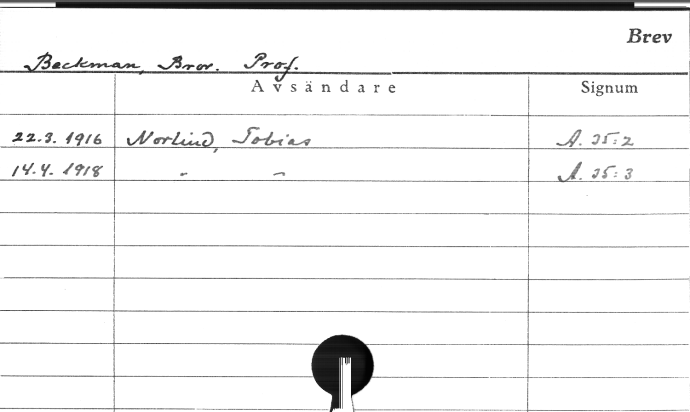 Brev
Backman, Bror. Prof.
Avsändare Signum
22.3. 1916 Norlind, Tobias A. 35:2
14.4. 1918 - - A. 35:3